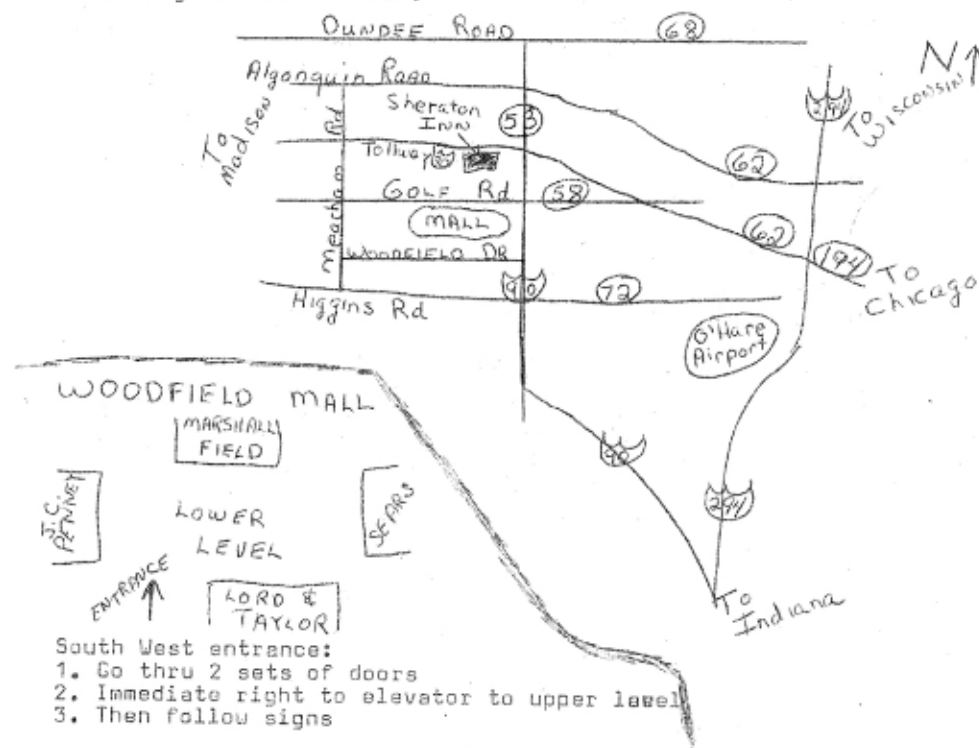 DUNDEE ROAD
68
N
Algonquin Road
294
To Wisconsin
To Madison
Sheraton
INN
53
Meacham Rd
Tollway
62
GOLF Rd
58
MALL
62
WOODFIELD DR
194
To
Chicago
90
72
Higgins Rd
O'Hare
Airport
WOODFIELD MALL
MARSHALL
FIELD
90
J.C.
PENNEY
LOWER
LEVEL
SEARS
294
ENTRANCE
LORD &
TAYLOR
To
Indiana
South West entrance:
1. Go thru 2 sets of doors
2. Immediate right to elevator to upper level
3. Then follow signs